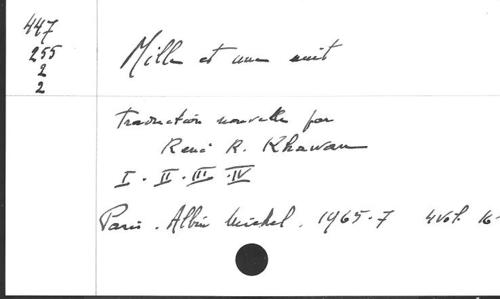 447
255
2
2
Mille et une nuit
Traduction nouvelle par
René R. Khawam
I. II. III. IV
Paris. Albin Michel. 1965-7 4 vol. 16-